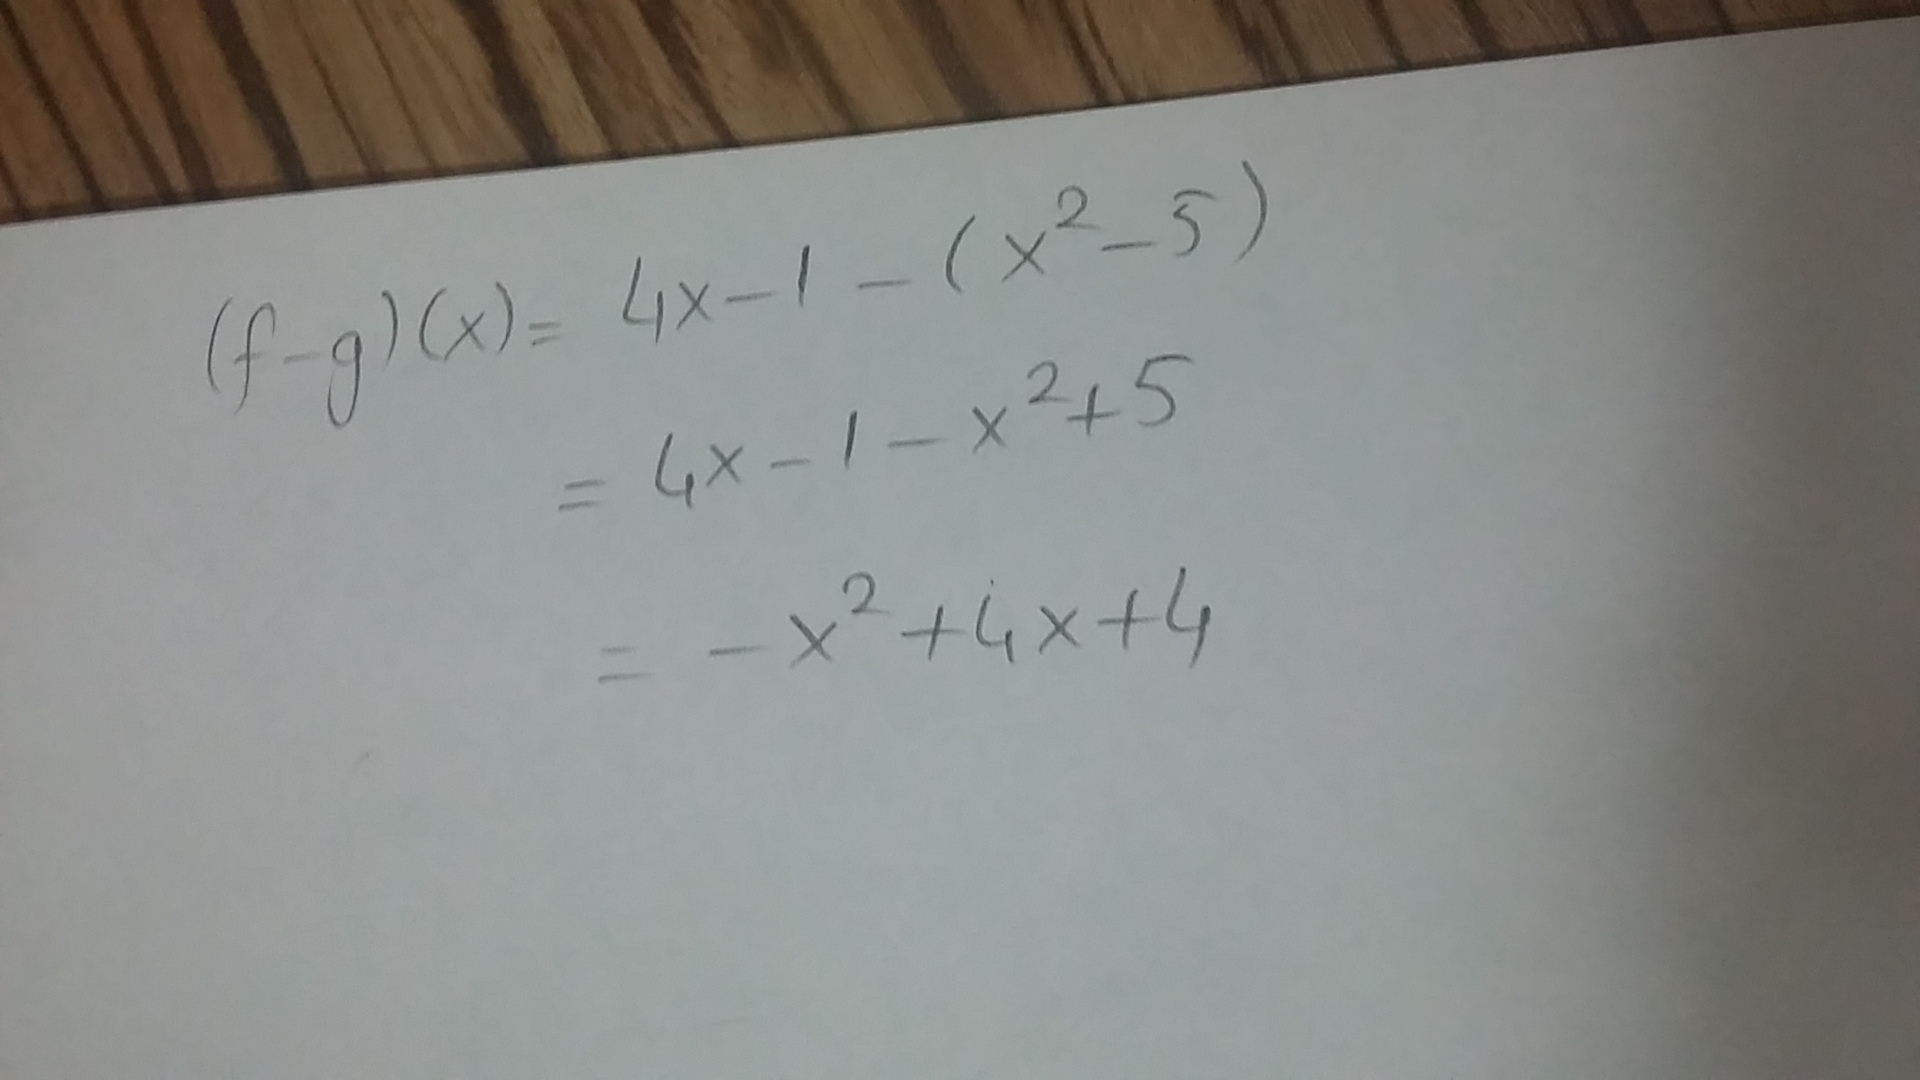 (f-g)(x) = 4x-1-(x²-5)
= 4x-1-x²+5
= -x²+4x+4